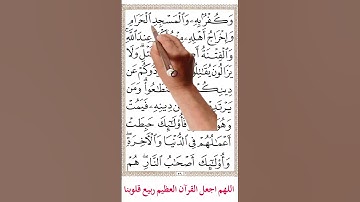 وَكُفْرٌۢ بِهِۦ وَٱلْمَسْجِدِ ٱلْحَرَامِ
وَإِخْرَاجُ أَهْلِهِۦ مِنْهُ عِندَ ٱللَّهِ
وَٱلْفِتْنَةُ وَلَا
يَزَالُونَ عَن
ٱسْتَطَٰعُوا۟ وَمَن
دِينِهِۦ فَيَمُتْ
وَهُوَ فَأُو۟لَٰٓئِكَ حَبِطَتْ
أَعْمَٰلُهُمْ فِى ٱلدُّنْيَا وَٱلْءَاخِرَةِ ۖ
وَأُو۟لَٰٓئِكَ أَصْحَٰبُ ٱلنَّارِ ۖ هُمْ
اللهم اجعل القرآن العظيم ربيع قلوبنا